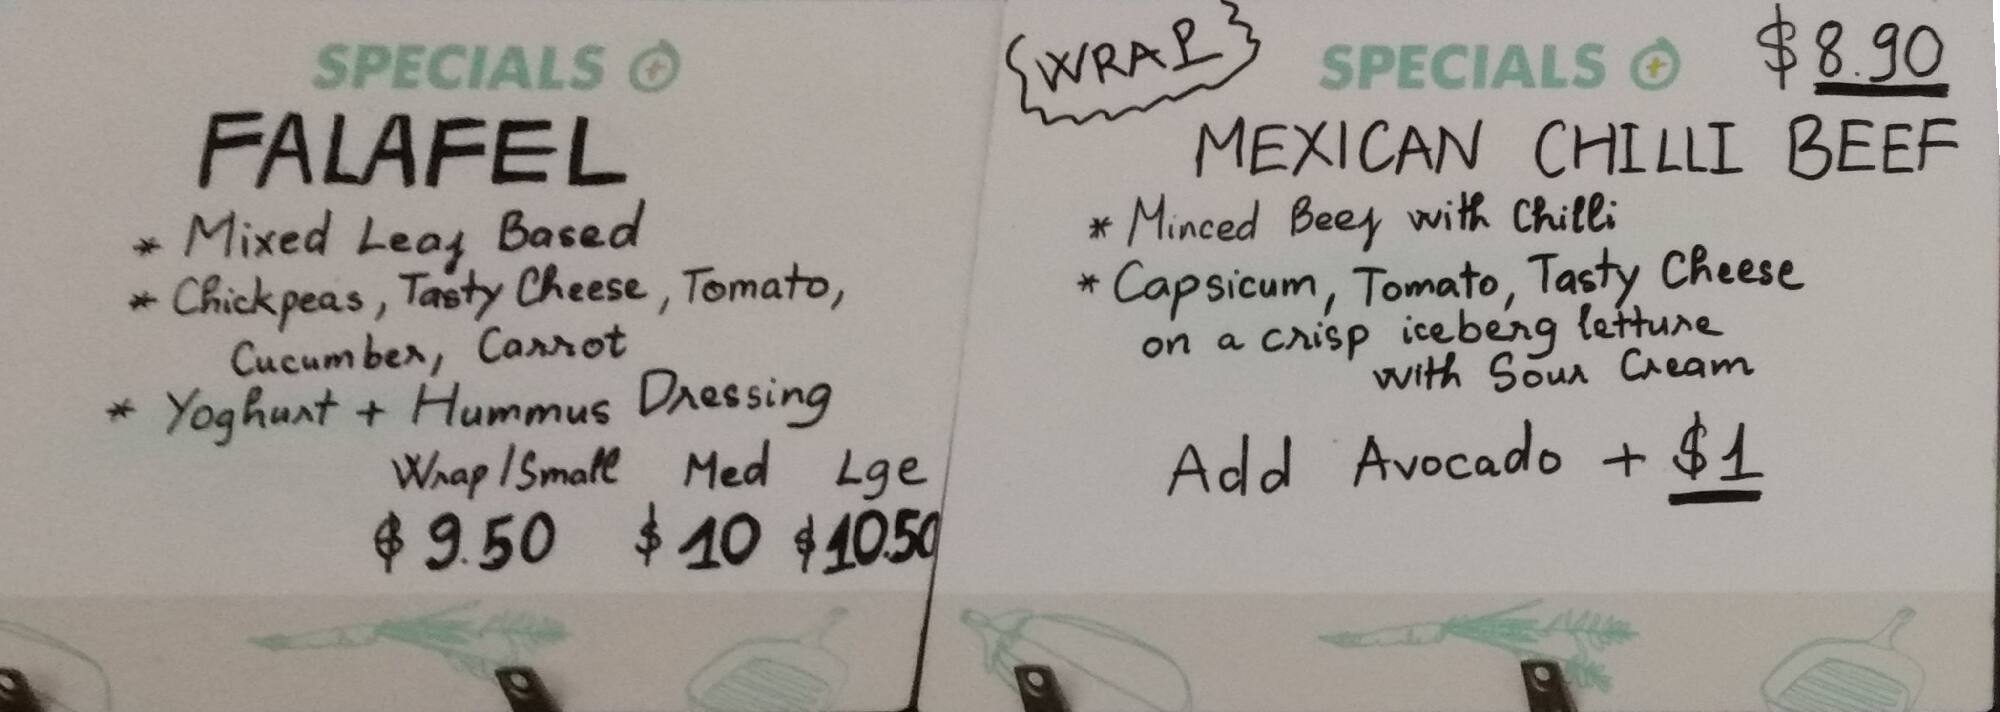 SPECIALS
FALAFEL
* Mixed Leaf Based
* Chickpeas, Tasty Cheese, Tomato,
Cucumber, Carrot
* Yoghurt + Hummus Dressing
Wrap/Small Med Lge
$9.50 $10 $10.50
{WRAP} SPECIALS $8.90
MEXICAN CHILLI BEEF
* Minced Beef with Chilli
* Capsicum, Tomato, Tasty Cheese
on a crisp iceberg letture
with Sour Cream
Add Avocado + $1